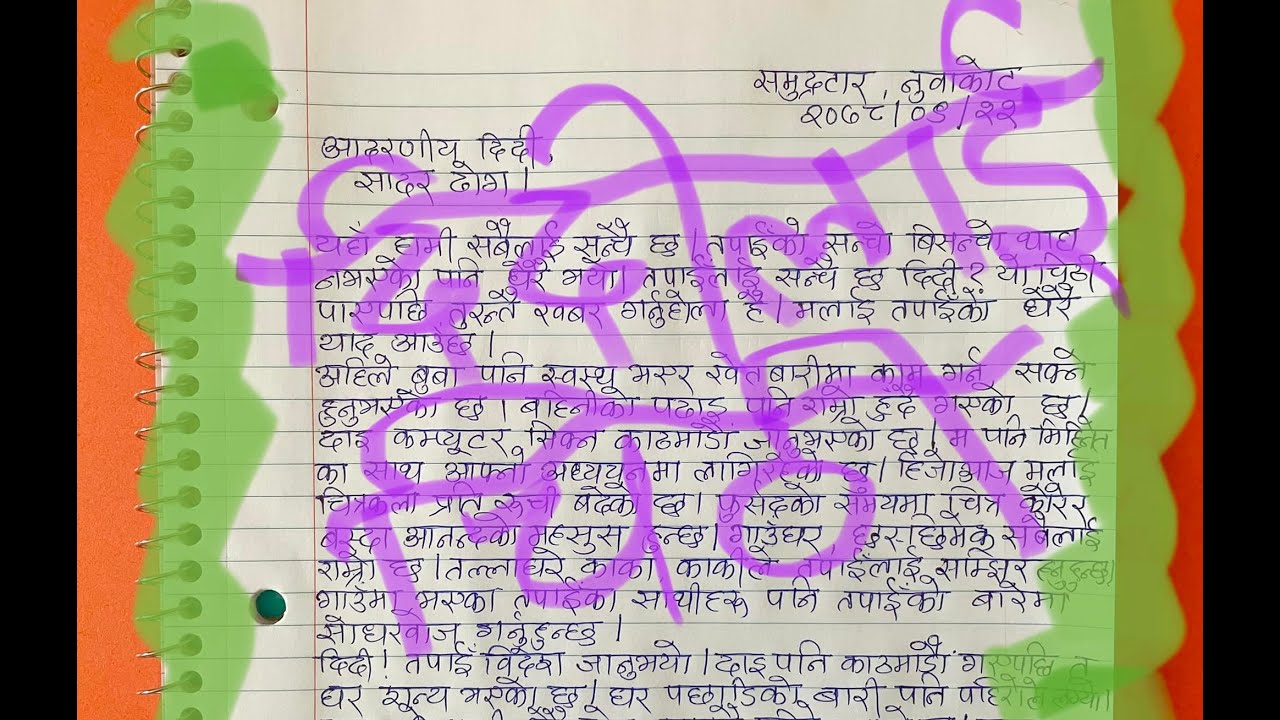 समुद्रटार, नुवाकोट
२०७८/०५/२२
आदरणीय दिदी,
सादर ढोग।
दिदीलाई
चिठी
यहाँ हामी सबैलाई सन्चै छ। तपाईँको सन्चो बिसन्चो थाहा
नभएको पनि धेरै भयो। तपाईलाई सन्चै छ दिदी? यो चिठी
पाएपछि तुरुन्तै खबर गर्नुहोला है। मलाई तपाईँको धेरै
याद आउँछ।
अहिले बुबा पनि स्वस्थ भएर खेतबारीमा काम गर्न सक्ने
हुनुभएको छ। बहिनीको पढाइ पनि राम्रो हुँदै गएको छ।
दाइ कम्प्यूटर सिक्न काठमाडौँ जानुभएको छ। म पनि मिहिनेत
का साथ आफ्नो अध्ययनमा लागिरहेको छु। हिजोआज मलाई
चित्रकला प्रति रूची बढेको छ। फुर्सदको समयमा चित्र कोरेर
बस्दा आनन्दको महसुस हुन्छ। गाउँघर, छरछिमेक सबैलाई
राम्रो छ। तल्लाघरे काका काकीले तपाईँलाई सम्झिर हनुहुन्छ।
गाउँमा भएका तपाईँका साथीहरू पनि तपाईँको बारेमा
सोधखोज गर्नुहुन्छ।
दिदी! तपाईँ विदेश जानुभयो। दाइ पनि काठमाडौँ गएपछि त
घर शून्य भएको छ। घर पछाडिको बारी पनि पहिरोले लग्यो।